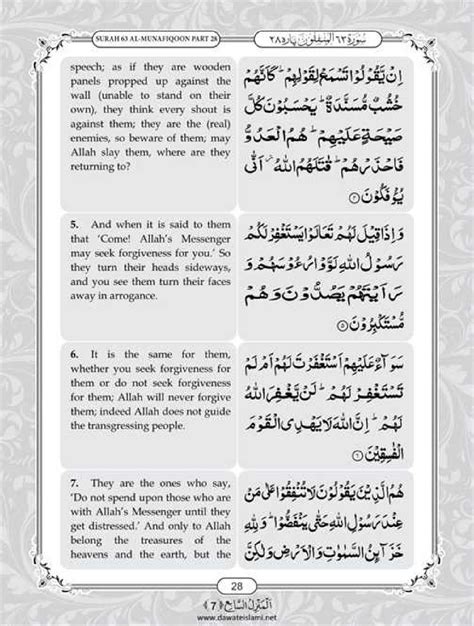 SURAH 63 AL-MUNAFIQOON PART 28
سُوْرَة ٦٣ الْمنٰفِقُون پاره ٢٨
speech; as if they are wooden
panels propped up against the
wall (unable to stand on their
own), they think every shout is
against them; they are the (real)
enemies, so beware of them; may
Allah slay them, where are they
returning to?
اِنْ يَّقُوْلُوْا تَسْمَعْ لِقَوْلِهِمْ ؕ كَاَنَّهُمْ
خُشُبٌ مُّسَنَّدَةٌ ؕ يَحْسَبُوْنَ كُلَّ
صَيْحَةٍ عَلَيْهِمْ ؕ هُمُ الْعَدُوُّ
فَاحْذَرْهُمْ ؕ قٰتَلَهُمُ اللّٰهُ ۫ اَنّٰى
يُؤْفَكُوْنَ ﴿۴﴾
5. And when it is said to them
that ‘Come! Allah’s Messenger
may seek forgiveness for you.’ So
they turn their heads sideways,
and you see them turn their faces
away in arrogance.
وَ اِذَا قِيْلَ لَهُمْ تَعَالَوْا يَسْتَغْفِرْ لَكُمْ
رَسُوْلُ اللّٰهِ لَوَّوْا رُءُوْسَهُمْ وَ
رَاَيْتَهُمْ يَصُدُّوْنَ وَ هُمْ
مُّسْتَكْبِرُوْنَ ﴿۵﴾
6. It is the same for them,
whether you seek forgiveness for
them or do not seek forgiveness
for them; Allah will never forgive
them; indeed Allah does not guide
the transgressing people.
سَوَآءٌ عَلَيْهِمْ اَسْتَغْفَرْتَ لَهُمْ اَمْ لَمْ
تَسْتَغْفِرْ لَهُمْ ؕ لَنْ يَّغْفِرَ اللّٰهُ
لَهُمْ ؕ اِنَّ اللّٰهَ لَا يَهْدِى الْقَوْمَ
الْفٰسِقِيْنَ ﴿۶﴾
7. They are the ones who say,
‘Do not spend upon those who are
with Allah’s Messenger until they
get distressed.’ And only to Allah
belong the treasures of the
heavens and the earth, but the
هُمُ الَّذِيْنَ يَقُوْلُوْنَ لَا تُنْفِقُوْا عَلٰى مَنْ
عِنْدَ رَسُوْلِ اللّٰهِ حَتّٰى يَنْفَضُّوْا ؕ وَ لِلّٰهِ
خَزَآىِٕنُ السَّمٰوٰتِ وَ الْاَرْضِ وَ لٰكِنَّ
28
اَلْمَنْزِلُ السَّابِع ﴿7﴾
www.dawateislami.net